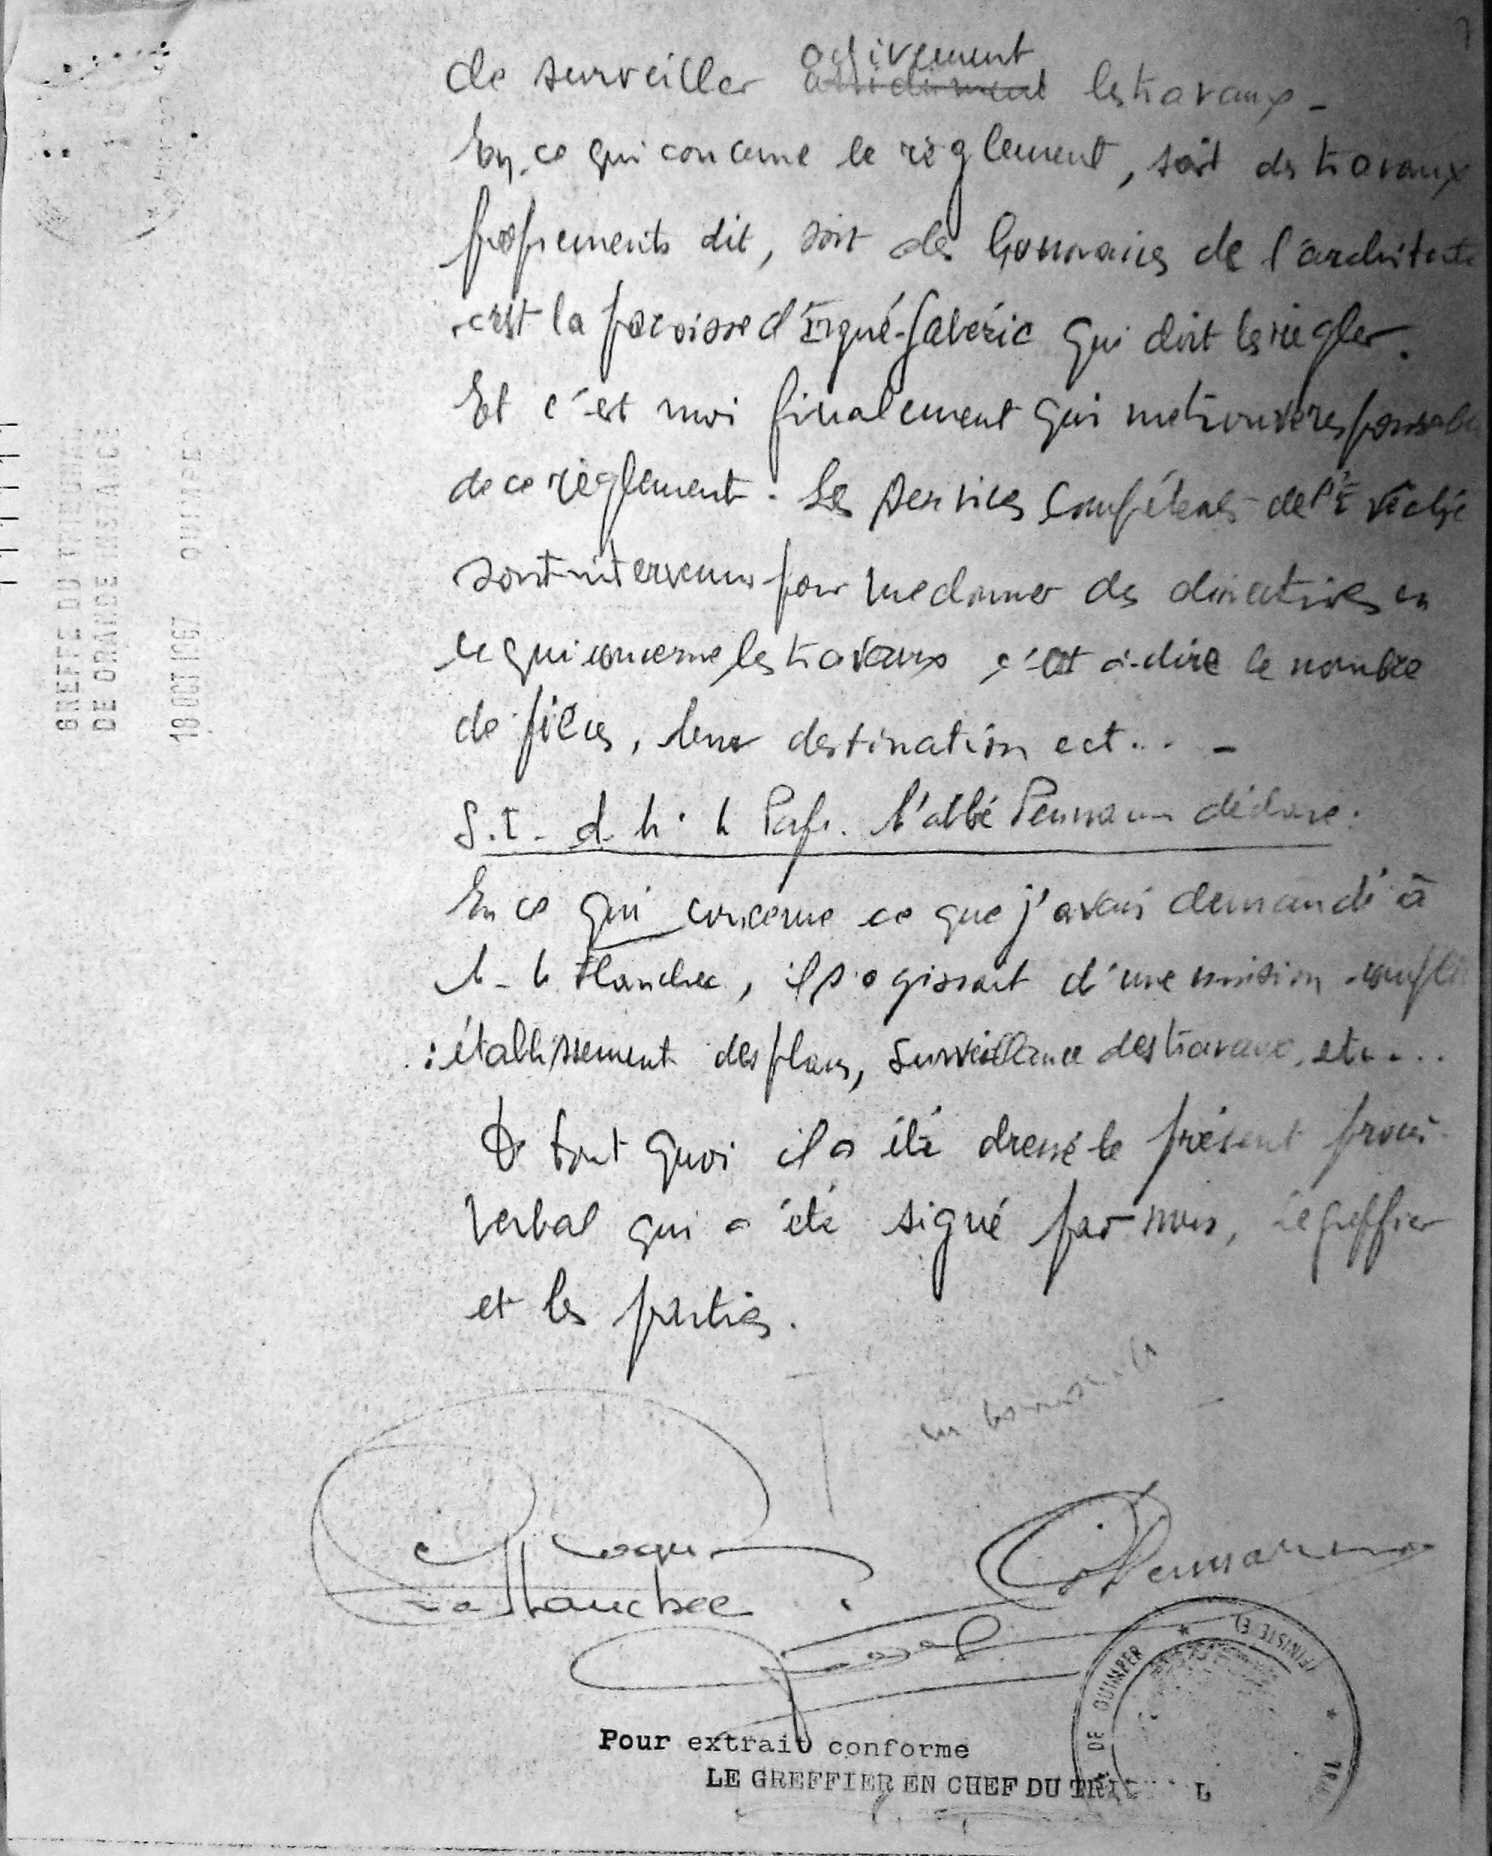 activement
de surveiller assidument les travaux -
En ce qui concerne le règlement, soit des travaux
proprements dit, soit des honoraires de l'architecte
c'est la paroisse d'Ergué-Gabéric qui doit les règler.
Et c'est moi finalement qui me trouve responsable
de ce règlement. Les services compétents de l'Evêché
sont intervenus pour me donner des directives en
ce qui concerne les travaux c'est à-dire le nombre
de pièces, leur destination ect... -
S.I. d. h. L'abbé Pennarun déclare:
En ce qui concerne ce que j'avais demandé à
M. le Flanchec, il s'agissait d'une mission
: établissement des plans, surveillance des travaux, etc...
De tout quoi il a été dressé le présent procès-
verbal qui a été signé par nous, le greffier
et les parties.
Le Flanchec
Pennarun
Pour extrait conforme
LE GREFFIER EN CHEF DU TRI L
DE QUIMPER * (FINISTERE) * TRI
GREFFE DU TRIBUNAL
DE GRANDE INSTANCE
18 OCT 1967 QUIMPER